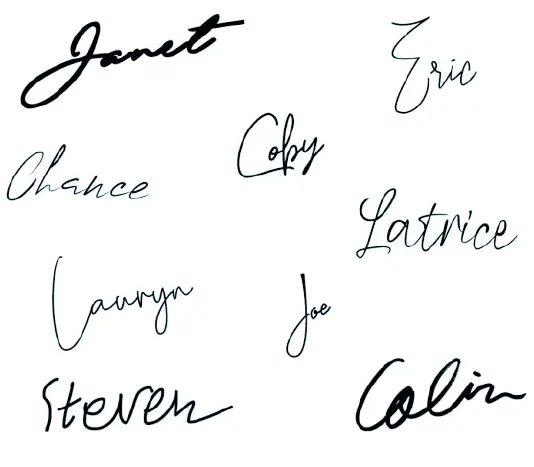 Janet
Eric
Coby
Chance
Latrice
Lauryn
Joe
Steven
Colin